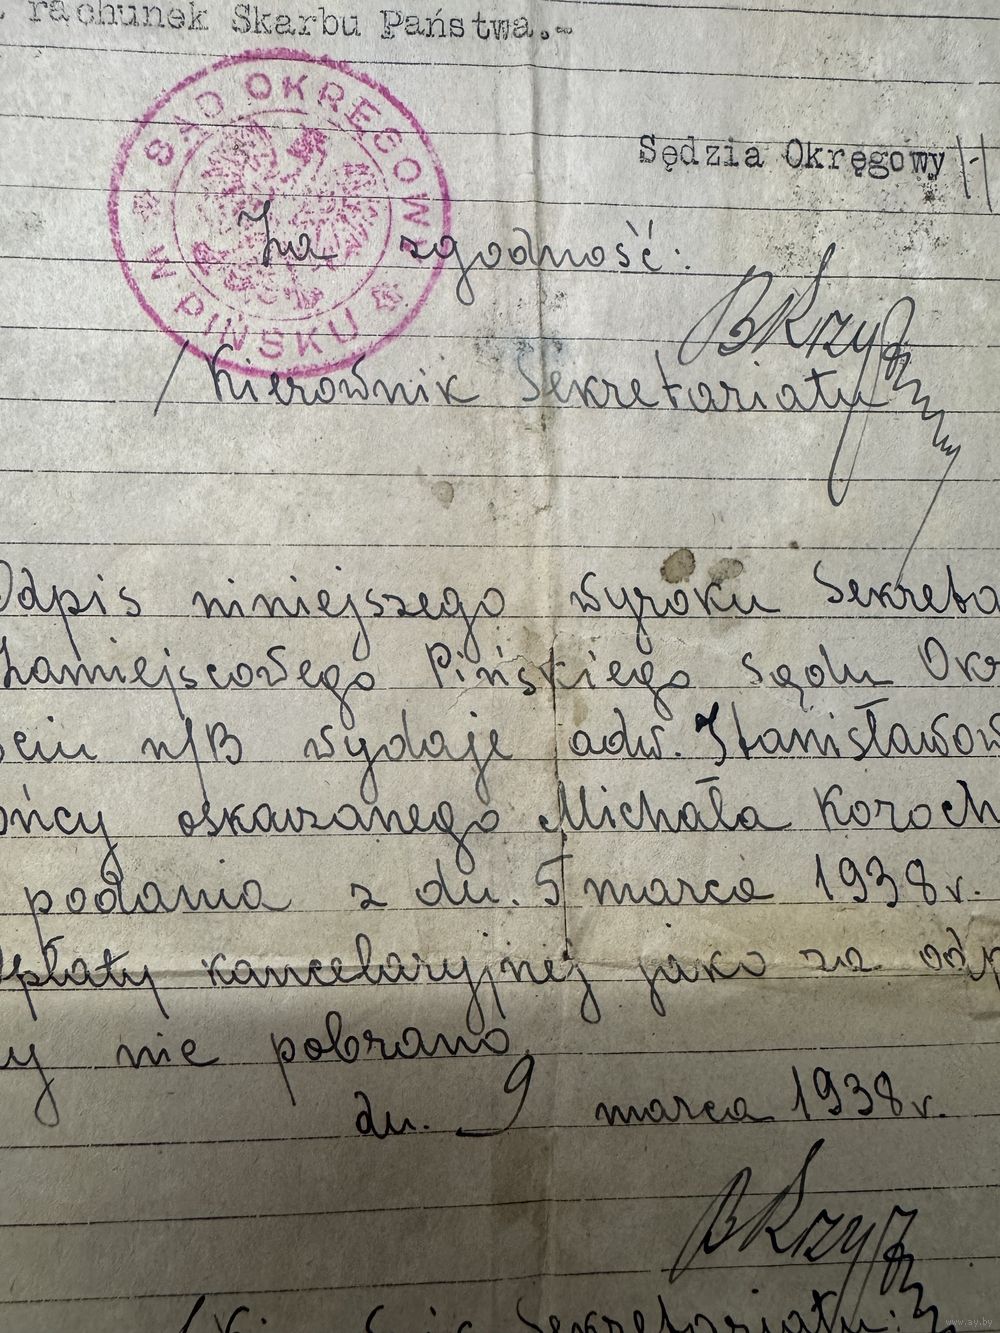 rachunek Skarbu Państwa.-
SĄD OKRĘGOWY
W PIŃSKU
Sędzia Okręgowy /-/
Za zgodność:
BKrzy
/Kierownik Sekretariatu
Odpis niniejszego wyroku Sekreta
Zamiejscowego Pińskiego Sądu Okr
ciu n/B wydaję adw. Stanisławow
ońcy oskarżanego Michała Koroch
podania z dn. 5 marca 1938 r.
opłaty kancelaryjnej jako za odp
y nie pobrano.
dn. 9 marca 1938 r.
BKrzy
Sekretariatu
www.ay.by